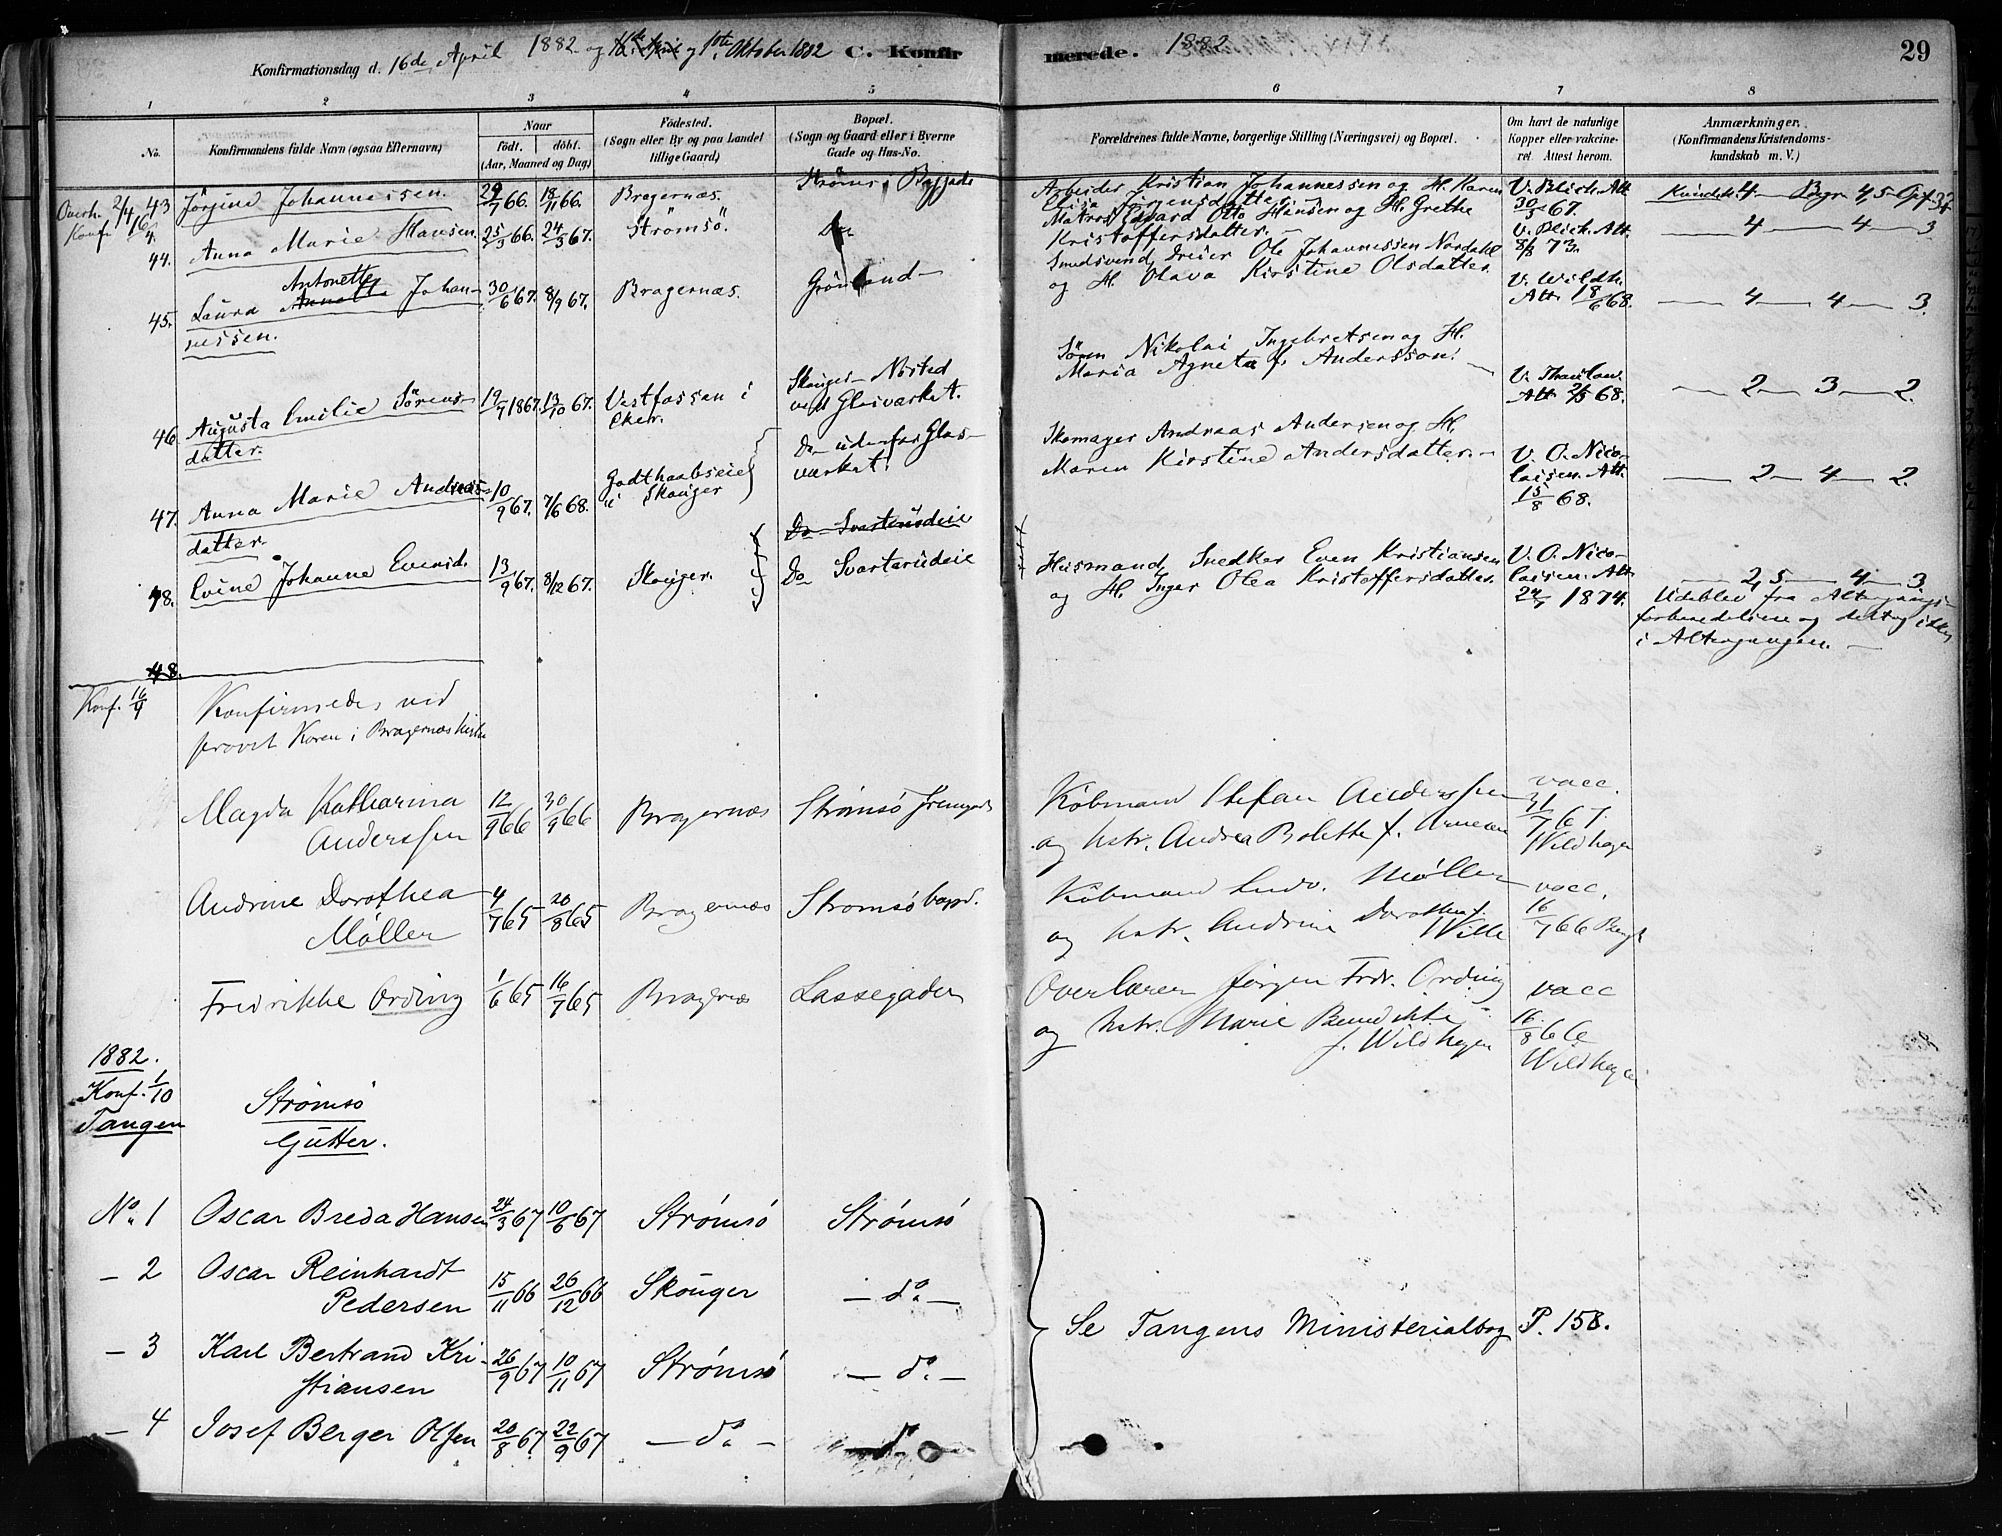 Konfirmationsdag d. 16de April 1882 og 16de April og 1ste Oktober 1882 C. Konfirmerede. 1882 29
1 2 3 4 5 6 7 8
No. Konfirmandens fulde Navn (ogsaa Efternavn)
Naar født. døbt. (Aar, Maaned og Dag)
Fødested. (Sogn eller By og paa Landet tillige Gaard)
Bopæl. (Sogn og Gaard eller i Byerne Gade og Hus-No.
Forældrenes fulde Navne, borgerlige Stilling (Næringsvei) og Bopæl.
Om havt de naturlige Kopper eller vakcineret Attest herom.
Anmærkninger. (Konfirmandens Kristendomskundskab m. V.)
Overh. 2/4 43 Jørgine Johannessen. 29/7 66. 18/11 66. Bragernæs. Strøms. Byggade
Arbeider Kristian Johannessen og H. Karen Elisa Jörgensdatter. V. Blich. Att. 30/3 67. Kundsk. 4 — Begr. 4,5
Konf. 16/4. 44. Anna Marie Hansen. 25/3 66. 24/3 67. Strömsö. Do
Matros Edvard Otto Hansen og H. Grethe Kristoffersdatter. — V. Blich. Att. 8/8 73. — 4 — 4 — 3
45. Laura Antonette Johannessen. 30/6 67. 8/9 67. Bragernæs. Grönland
Smedsvend, Dreier Ole Johannessen Nordahl og H. Olava Kirstine Olsdatter. Att. 18/6 68. — 4 — 4 — 3.
46. Augusta Emilie Sörensdatter. 19/7 1867. 13/10 67. Vestfossen i Eker. Skouger — Nøsted ved Glasværket.
Sören Nikolai Ingebretsen og H. Maria Agneta f. Andersson. — Att. 2/5 68. — 2 — 3 — 2.
47. Anna Marie Andreasdatter. 10/9 67. 7/6 68. Godthaabseie i Skouger Do udenfor Glasværket.
Skomager Andreas Andersen og H. Maren Kirstine Andersdatter. — V. O. Nicolaisen. Att. 15/8 68. — 2 — 4 — 2.
Do Svarterudeie
48. Evine Johanne Evensd. 13/9 67. 8/12 67. Skouger. Do Svarterudeie
Husmand, Snedker Even Kristiansen og H. Inger Olea Kristoffersdatter. V. O. Nicolaisen. Att. 24/7 1874. — 2,5 — 4 — 3
Udeblev fra Altergangsforberedelsen og deltog ikke i Altergangen. —
48.
Konf. 16/4 Konfirmedes ved
provst Koren i Bragernæs Kirke
Magda Katharina Anderssen 12/9 66 30/9 66 Bragernæs Strømsø Tremgade
Købmand Stefan Anderssen og hstr. Andrea Bolette f. Arnesen vacc. 31/7 67. Wildhagen
Andrine Dorothea Møller 4/7 65 20/8 65 Bragernæs Strømsø
Købmand Ludv. Møller og hstr. Andrine Dorothea f. Wille vacc. 16/7 66
Fredrikke Ording 1/6 65 16/7 65 Bragernæs Lassegaden
Overlærer Jørgen Fredr. Ording og hstr. Marie Benedikte f. Wildhagen vacc 16/8 66 Wildhagen
1882.
Konf. 1/10 Tangen
Strømsø
Gutter.
No. 1 Oscar Breda Hansen 24/3 67 10/6 67 Strømsø Strømsø
— 2 Oscar Reinhardt Pedersen 15/11 66 26/12 66 Skouger — do. —
Se Tangens Ministerialbog P. 158.
— 3 Karl Bertrand Kristiansen 26/9 67 10/11 67 Strømsø — do. —
— 4 Josef Berger Olsen 20/8 67 22/9 67 — do. — — do. —